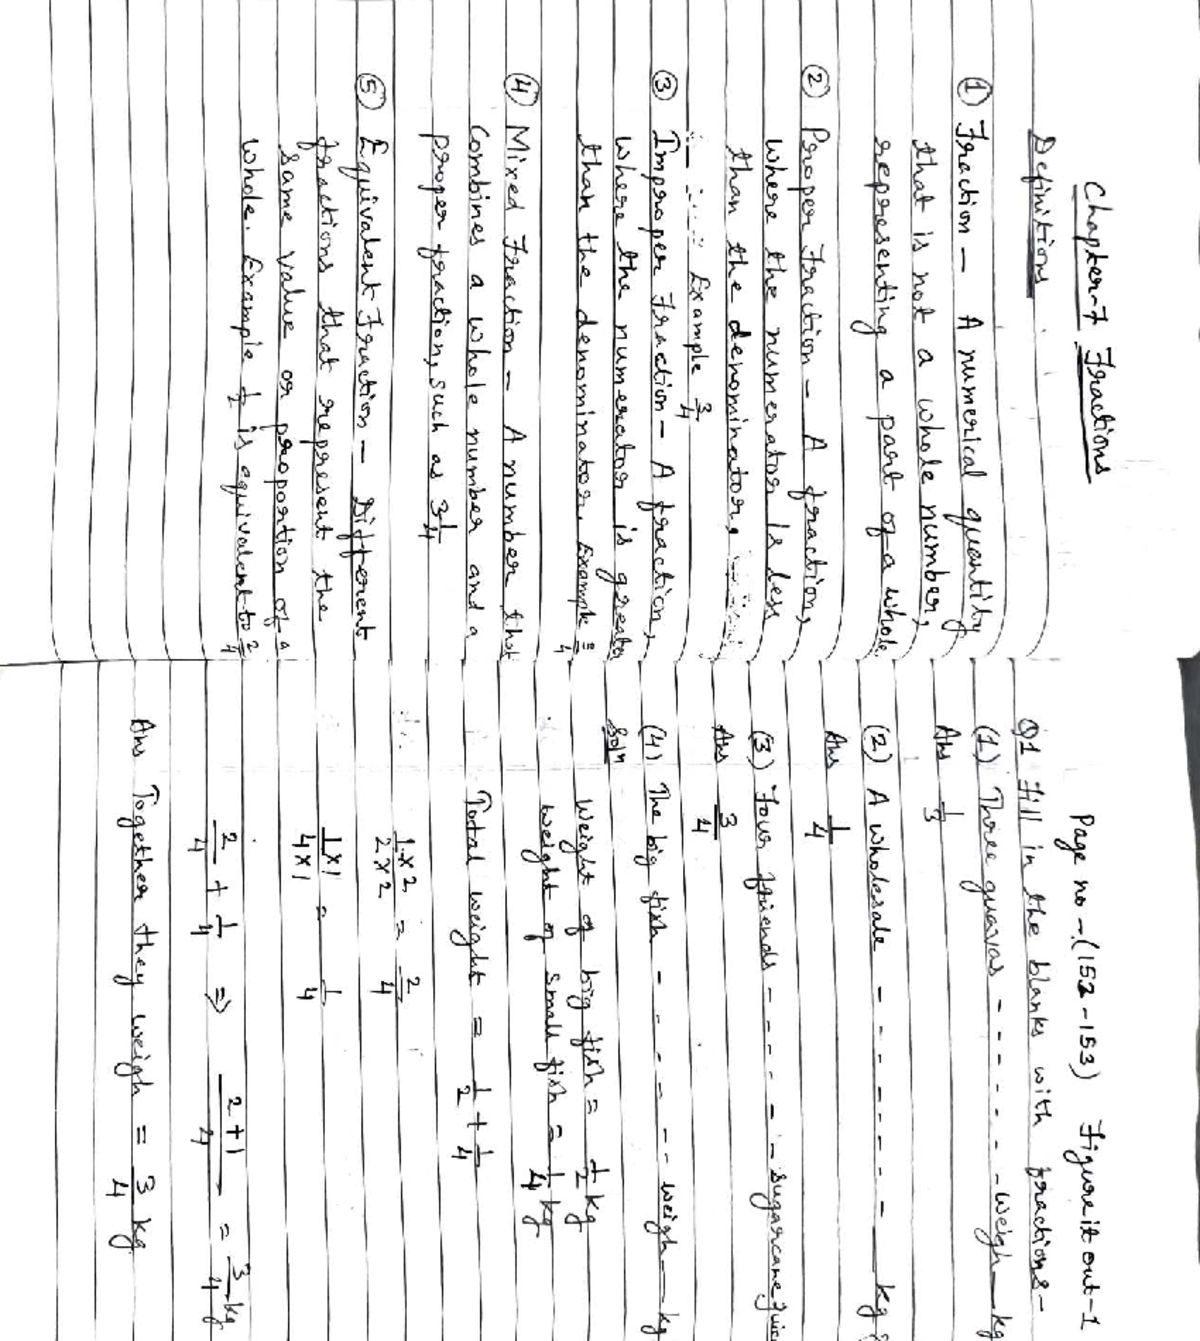 Chapter-7 Fractions
Definitions
① Fraction - A numerical quantity
that is not a whole number,
representing a part of a whole.
② Proper Fraction - A fraction,
where the numerator is less
than the denominator,
Example 3/4
③ Improper Fraction - A fraction,
where the numerator is greater
than the denominator. Example
④ Mixed Fraction - A number that
combines a whole number and a
proper fraction, such as 3 1/4
⑤ Equivalent Fraction - Different
fractions that represent the
same value or proportion of a
whole. Example 1/2 is equivalent to 2/4
Page no - (152-153) Figure it out-1
Q1 Fill in the blanks with fractions-
(1) Three guavas - - - - - - - weigh __ kg
Ans 1/3
(2) A wholesale - - - - - - - - __ kg
Ans 1/4
(3) Four friends - - - - - - sugarcane juice
Ans 3/4
(4) The big fish - - - - - - - weigh __ kg
Soln Weight of big fish = 1/2 kg
Weight of small fish = 1/4 kg
Total weight = 1/2 + 1/4
1×2/2×2 = 2/4
1×1/4×1 = 1/4
2/4 + 1/4 ⇒ 2+1/4 = 3/4 kg
Ans Together they weigh = 3/4 kg